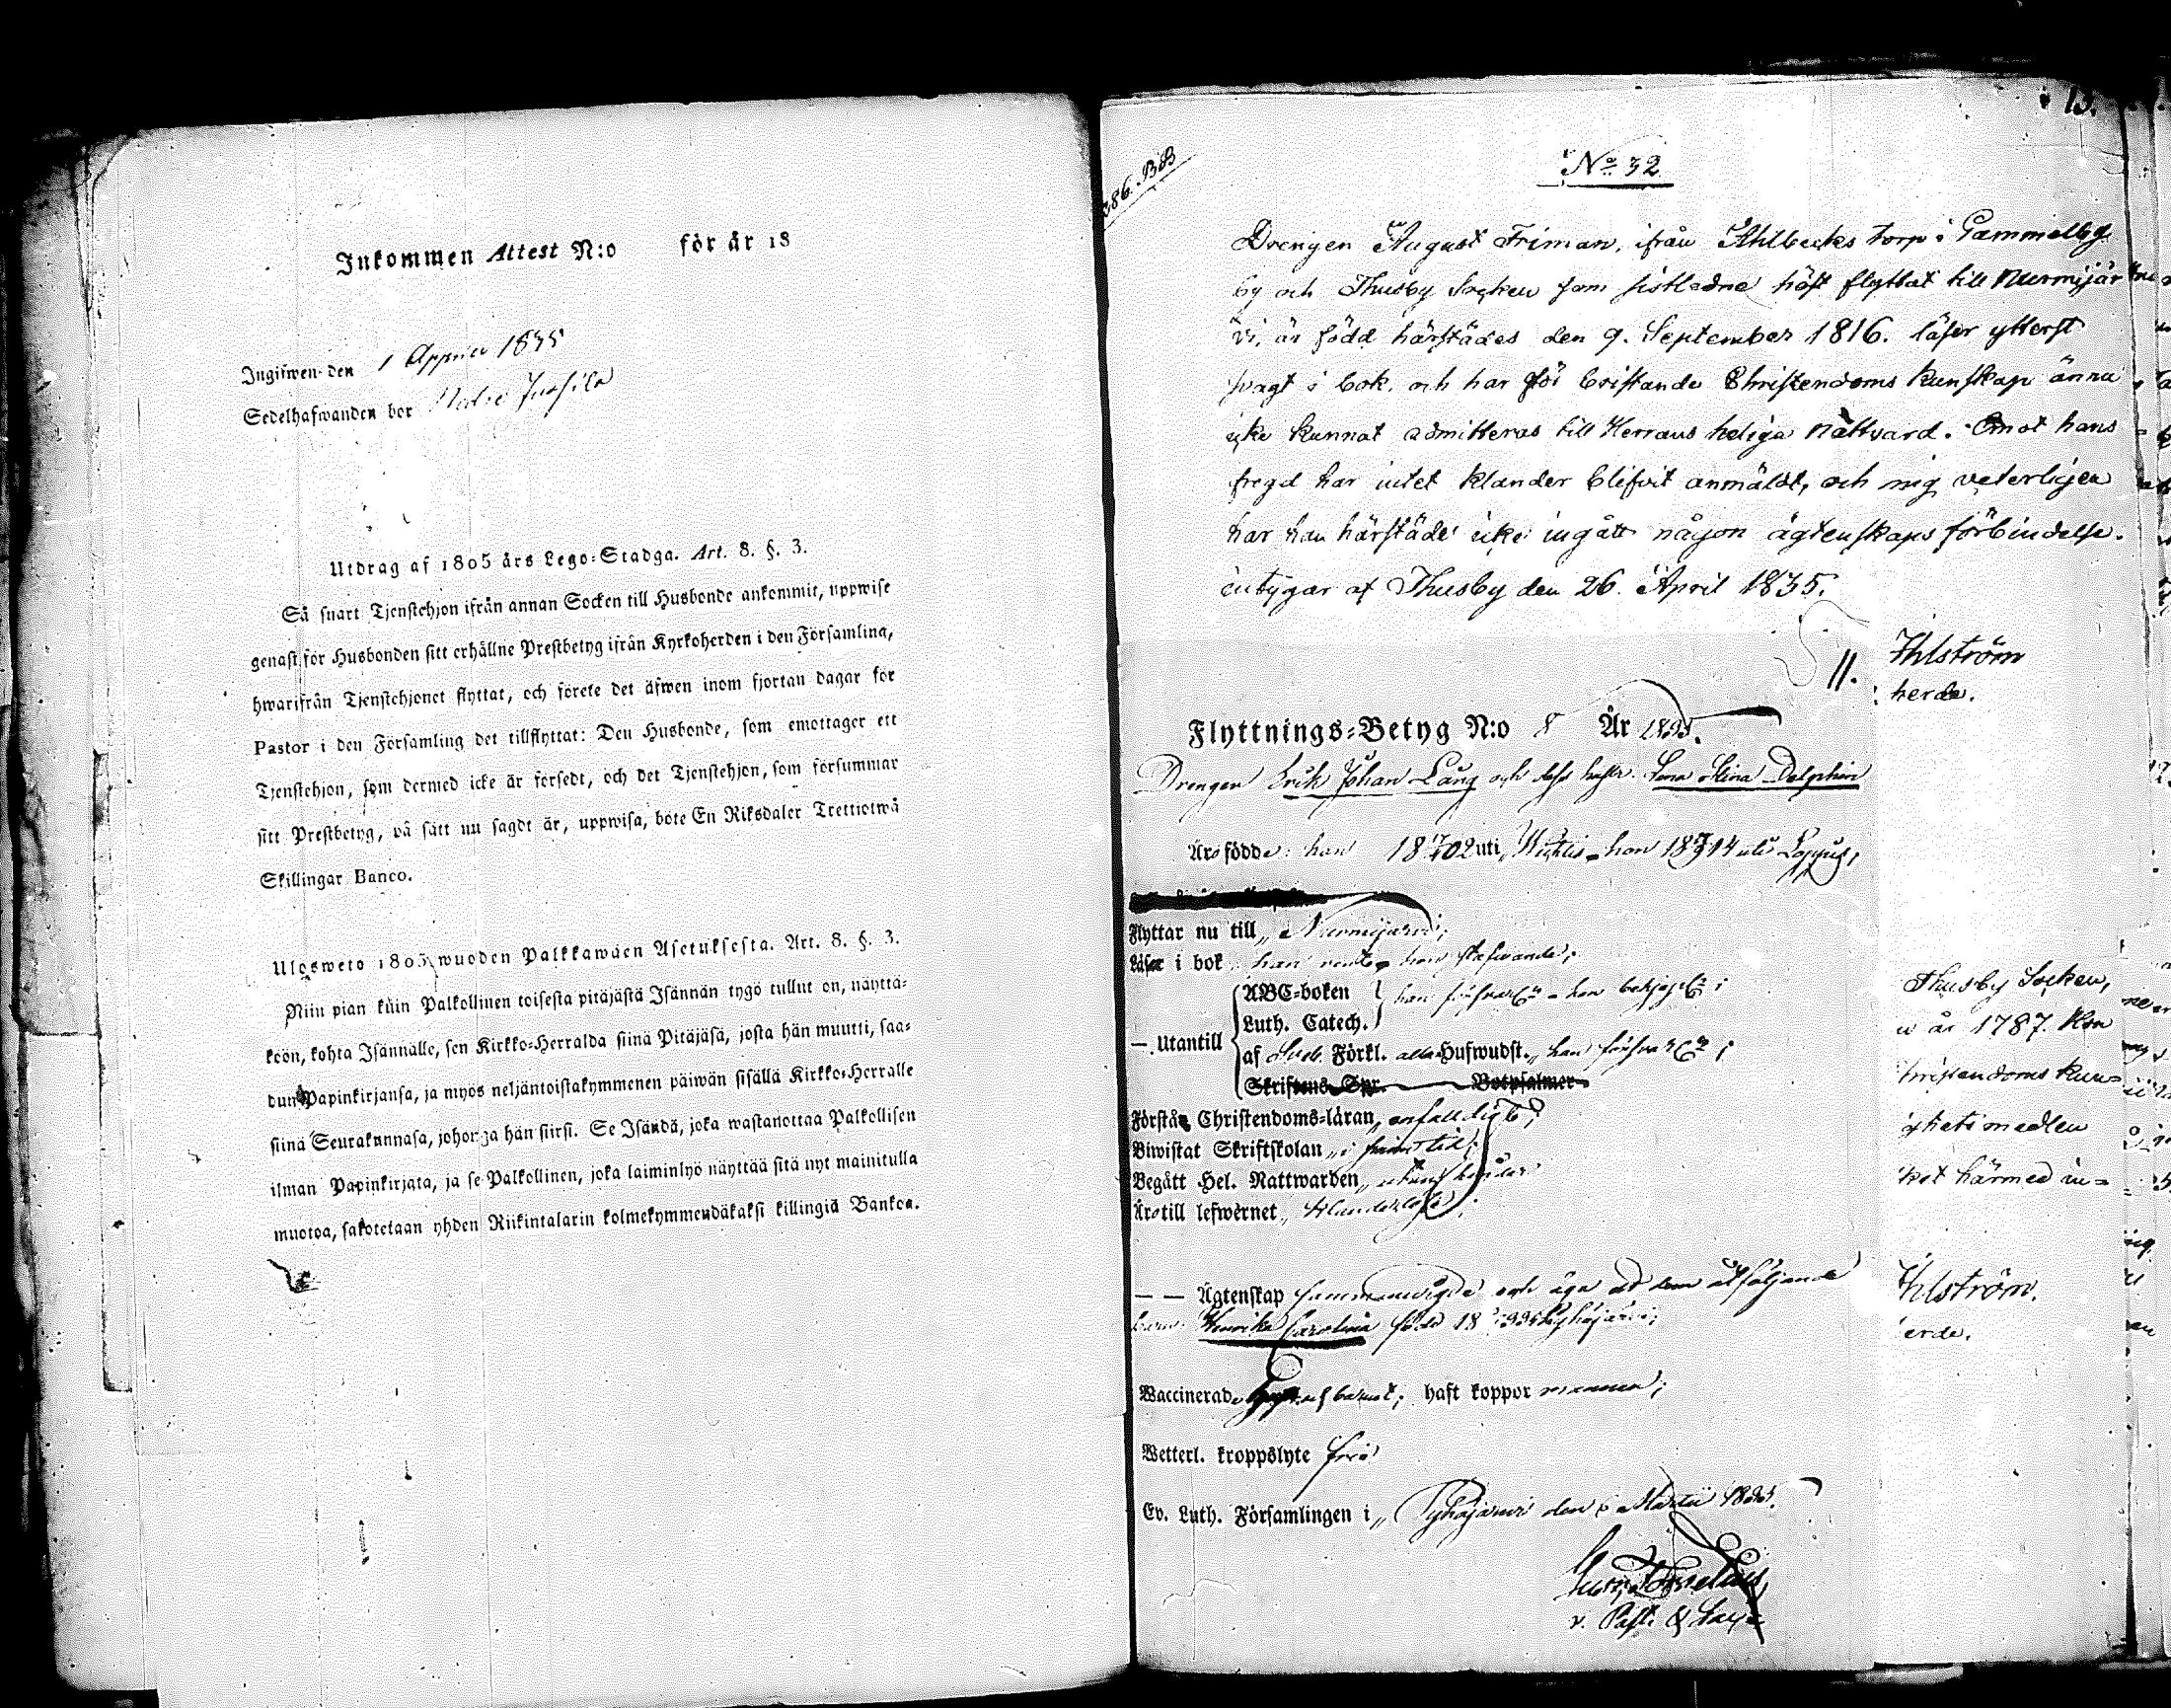 Inkommen Attest N:o för år 18
Ingifwen den 1 1835
Sedelhafwanden bor
Utdrag af 1805 års Lego-Stadga. Art. 8. §. 3.
Så snart Tjenstehjon ifrån annan Socken till Husbonde ankommit, uppwise
genast för Husbonden sitt erhållne Prestbetyg ifrån Kyrkoherden i den Församling,
hwarifrån Tjenstehjonet flyttat, och förete det äfwen inom fjortan dagar för
Pastor i den Församling det tillflyttat: Den Husbonde, som emottager ett
Tjenstehjon, som dermed icke är försedt, och det Tjenstehjon, som försummar
sitt Prestbetyg, på sätt nu sagdt är, uppwisa, böte En Riksdaler Trettiotwå
Skillingar Banco.
Ulosweto 1805 wuoden Palkkawäen Asetuksesta. Art. 8. §. 3.
Niin pian kuin Palkollinen toisesta pitäjästä Isännän tygö tullut on, näyttä-
köön, kohta Isännälle, sen Kirkko-Herralda siinä Pitäjäsä, josta hän muutti, saa-
dun Papinkirjansa, ja myös neljäntoistakymmenen päiwän sisällä Kirkko-Herralle
siinä Seurakunnasa, johonga hän siirsi. Se Isändä, joka wastanottaa Palkollisen
ilman Papinkirjata, ja se Palkollinen, joka laiminlyö näyttää sitä nyt mainitulla
muotoa, sakotetaan yhden Riikintalarin kolmekymmendäkaksi killingiä Bankoa.
13.
286. BB
No 32
Drengen August Friman, ifrån Ahlbecks torp i Gammelby
by och Thusby Socken som sistledne höst flyttat till Nurmijär
vi, är född härstädes den 9. September 1816. läser ytterst
svagt i bok, och har för bristande Christendoms kunskap ännu
icke kunnat admitteras till Herrans heliga nattvard. Emot hans
fregd har intet klander blifvit anmäldt, och mig veterligen
har han härstädes icke ingått någon ägtenskaps förbindelse.
intygar af Thusby den 26. April 1835.
Ihlström
herde.
11.
Flyttnings-Betyg N:o 8 År 1835.
Drengen Erik Johan Lång och dess hustr. Lena Stina Dolphin
Äro födde: han 18 02 uti Wichtis - hon 18 14 uti Loppis,
Flyttar nu till Nurmijärvi;
Läser i bok han hon stafwande;
ABC-boken
Luth. Catech.
Utantill
af Sveb. Förkl. alla Hufwudst. han
Skriftens Spr. Botpsalmer
Förstå Christendoms-läran enfaldigt;
Biwistat Skriftskolan i
Begått Hel. Nattwarden
Äro till lefwernet
Thusby Socken,
år 1787. Hon
hristendoms kun=
ghetsmedlen
ket härmed in=
hlström.
erde.
Ägtenskap sammanvigde och äga ett dem åtföljande
barn: Henrika Carolina född 18
Waccinerade och barnet; haft koppor mannen;
Wetterl. kroppslyte fri
Ev. Luth. Församlingen i Pyhäjärvi den Martii 1835.
v. Past.